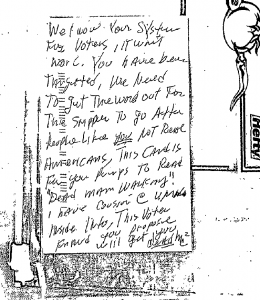 We know Your System
For Voters, it won't
work. You have been
Targeted, We Need
To get The word out For
The Snipper To go After
People Like you Not Real
Americans, This Card is
For you Punps To Read
"Dead man walking".
I have cousin @
Inside Info, This Voter
Fraud you propose
will get you
Hefty